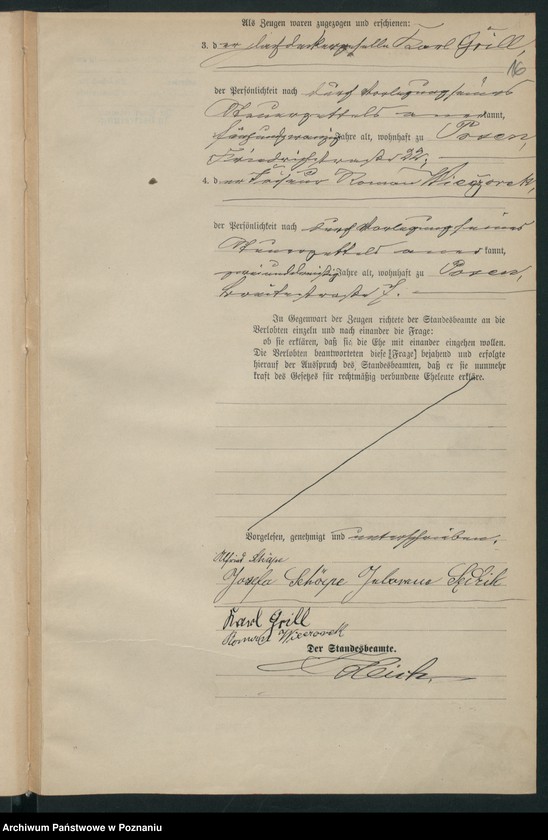 Als Zeugen waren zugezogen und erschienen:
3. der Dachdeckergeselle Karl Grill,
16
der Persönlichkeit nach durch Vorlegung seines
Steuerzettels anerkannt,
fünfundzwanzig Jahre alt, wohnhaft zu Posen,
Friedrichstraße 22;
4. der Friseur Roman Wieczorek,
der Persönlichkeit nach durch Vorlegung seines
Steuerzettels anerkannt,
zweiunddreißig Jahre alt, wohnhaft zu Posen,
Breitestraße 7.
In Gegenwart der Zeugen richtete der Standesbeamte an die
Verlobten einzeln und nach einander die Frage:
ob sie erklären, daß sie die Ehe mit einander eingehen wollen.
Die Verlobten beantworteten diese Frage bejahend und erfolgte
hierauf der Ausspruch des Standesbeamten, daß er sie nunmehr
kraft des Gesetzes für rechtmäßig verbundene Eheleute erkläre.
Vorgelesen, genehmigt und unterschrieben.
Josefa
Karl Grill
Roman Wieczorek
Der Standesbeamte.
Archiwum Państwowe w Poznaniu